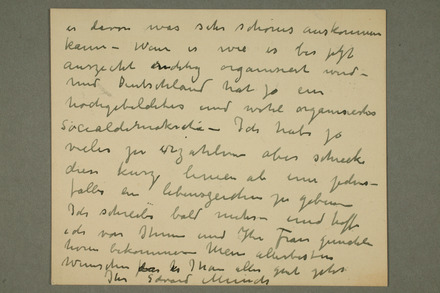 es davon was sehr schönes auskommen
kann – Wenn es wie es bis jetzt
aussieht richtig organisiert wird –
und Deutschland hat ja ein
hochgebildetes und wohl organisiertes
Socialdemokratie – Ich habe ja
vieles zu erzählen aber schreibe
dies kurz um jeden-
falles ein Lebenszeichen zu geben
Ich schreibe bald mehr – und hoffe
ich von Ihnen und Ihr Frau
hören bekommen Mein allerbesten
Wünschen Ihnen alles gut geht
Ihr Edvard Munch